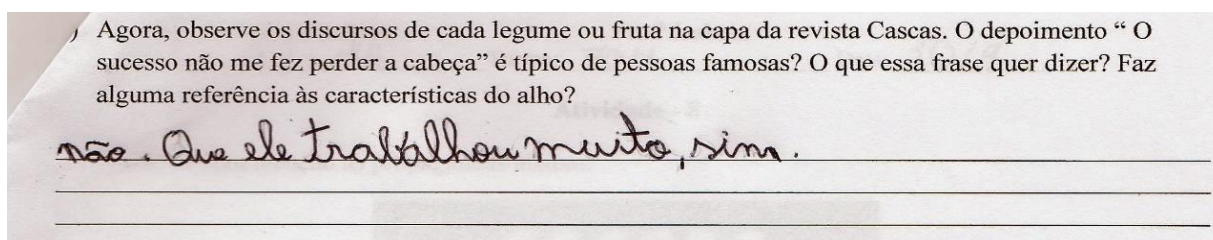 ) Agora, observe os discursos de cada legume ou fruta na capa da revista Cascas. O depoimento “ O
sucesso não me fez perder a cabeça” é típico de pessoas famosas? O que essa frase quer dizer? Faz
alguma referência às características do alho?
não. Que ele trabalhou muito, sim.